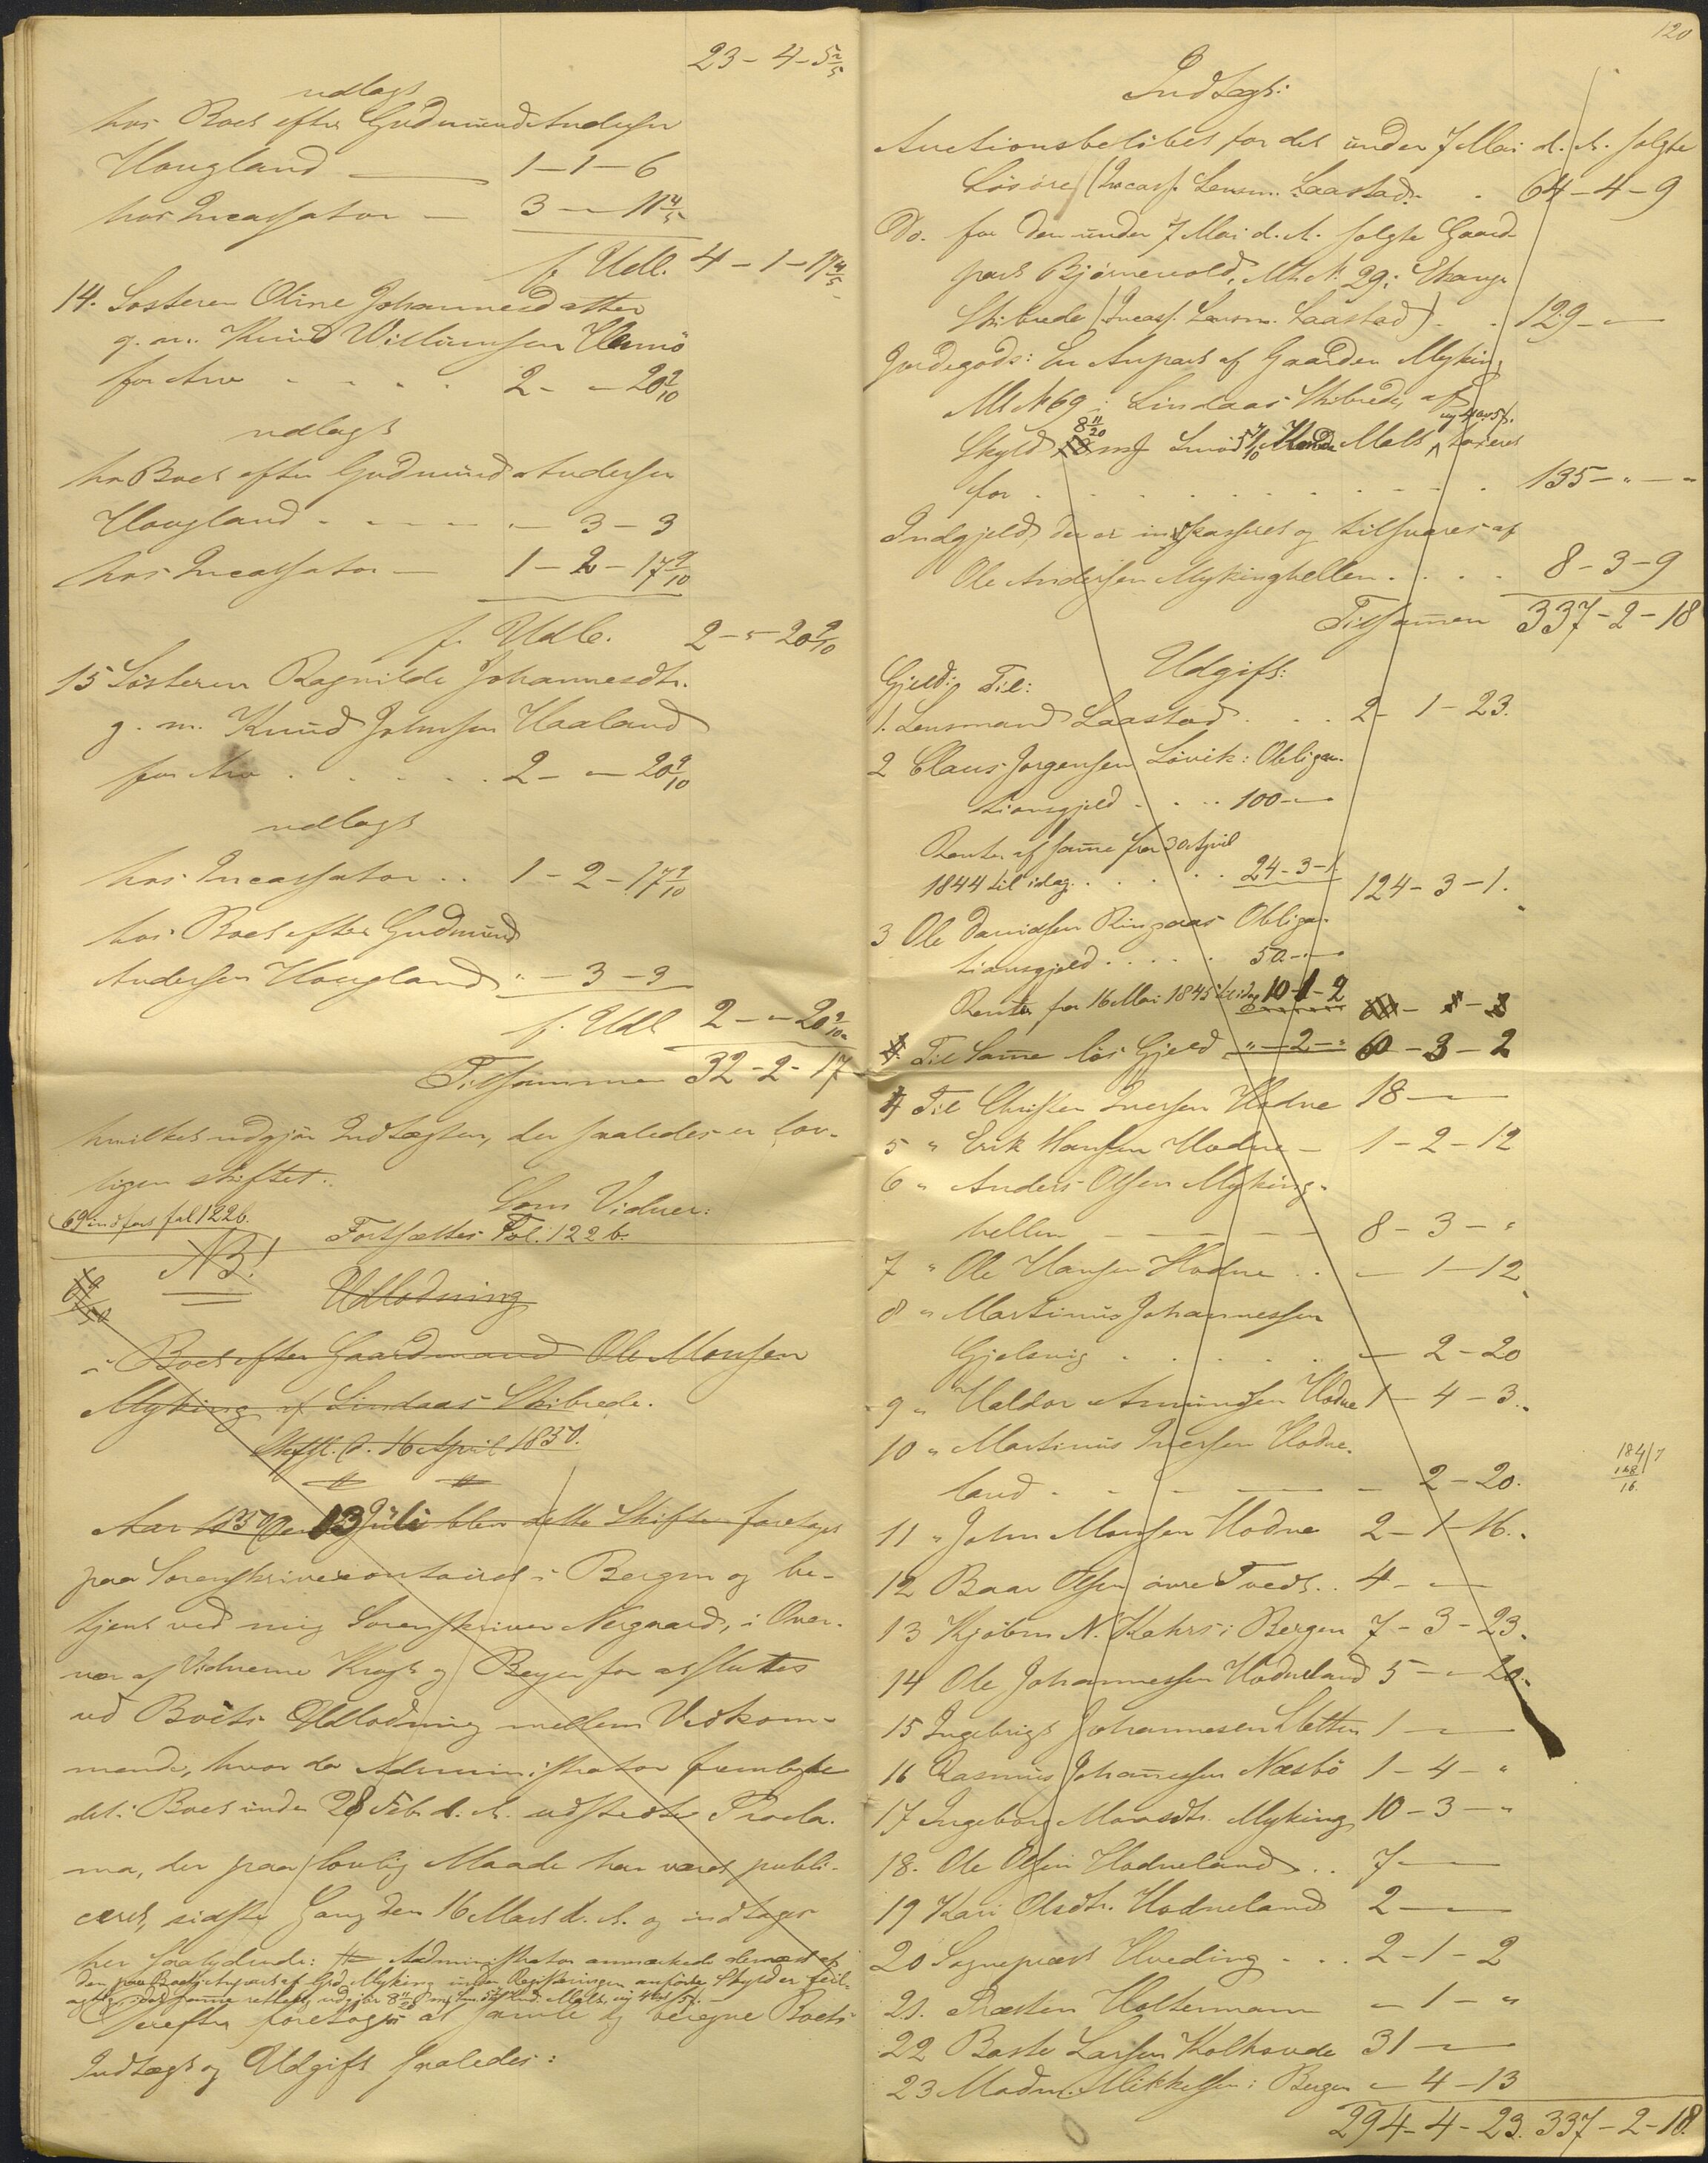 23 - 4 - 5 2/5
udlagt
hos Boet efter Gudmund Andersen
Hougland — 1 - 1 - 6
hos Incassator — 3 - " - 11 4/5
f. Udl. 4 - 1 - 17 4/5
14. Søsteren Oline Johannesdatter
g. m. Knud Willumsen
for Arv . . . . 2 - " - 20 9/10
udlagt
hos Boet efter Gudmund Andersen
Hougland . - - - " - 3 - 3
hos Incassator — 1 - 2 - 17 9/10
f. Udl. 2 - " - 20 9/10
15 Søsteren Ragnilde Johannesdtr.
g. m. Knud Johnsen Haaland
for Arv . . . . . 2 - " - 20 9/10
udlagt
hos Incassator . . 1 - 2 - 17 9/10
hos Boet efter Gudmund
Andersen Hougland " - 3 - 3
f. Udl 2 - " - 20 9/10
Tilsammen 32 - 2 - 17
hvilket udgjør Indtægten, der saaledes er lov-
ligen skiftet.
Som Vidner:
69 indført fol 122 b.
Fortsættes Fol. 122 b.
NB!
Udlodning
i Boet efter Gaardmand Ole Monsen
Myking af Lindaas Skibrede.
16 April 1850.
Aar 1850 den 13 Juli blev dette Skifte foretaget
paa Sorenskrivercontoiret i Bergen og be-
tjent ved mig Sorenskriver Nergaard, i Over-
vær af Vidnerne Krogh og Beyer for at sluttes
ved Boets Udlodning mellem Vedkom-
mende, hvor da Administrator fremlagde
det i Boet under 28 Feb. d. A. udstedte Procla-
ma, der paa lovlig Maade har været publi-
ceret, sidste Gang den 16 Marts d. A. og indtages
her saalydende: Administrator anmærkede dernæst at
den paa Boets Anpart af Grd. Myking under Registreringen anførte Skyld er feil-
agtig, idet samme rettelig udgjør 8 11/20
derefter foretoges at samle og beregne Boets
Indtægt og Udgift saaledes:
120
Indtægt:
Auctionsbeløbet for det under 7 Mai d. A. solgte
Løsøre (Incass. Lensm. Laastad. . 64 - 4 - 9
Do. for den under 7 Mai d. A. solgte Gaard-
part Bjørnevold, M. N. 29 i
Skibrede (Incass. Lensm. Laastad) . . 129 - " -
Jordegods: En Anpart af Gaarden Myking
M N 69 i Lindaas Skibrede, af
Skyld 8 11/20 Smør Malt taxeret
for . . . . . . . . . . 135 - " - "
Indgjeld, der er indkasseret og tilsvares af
Ole Andersen Mykinghellen . . . . 8 - 3 - 9
Tilsammen 337 - 2 - 18
Udgift:
Gjeld: Til:
1. Lensmand Laastad . . . 2 - 1 - 23.
2 Claus Jørgensen Løvik: Obliga-
tionsgjeld . . . 100 - " -
Renter af samme fra 20 April
1844 til idag . . . . . 24 - 3 - 1. 124 - 3 - 1.
3 Ole Davidsen Ringaas Obliga-
tionsgjeld . . . . . 50 - " -
Rente fra 16 Mai 1845 til idag 10 - 1 - 2
Til Samme løs Gjeld " - 2 - " 60 - 3 - 2
4 Til Christen Iversen Hodne 18 - " -
5 " Erik Hansen Hodne — 1 - 2 - 12
6 " Anders Olsen Myking-
hellen — 8 - 3 - "
7 " Ole Hansen Hodne . . — 1 - 12
8 " Martinus Johannessen
Gjelsvig . . . . . . — 2 - 20
9 " Haldor Amundsen Hodne 1 - 4 - 3.
10 " Martinus Iversen Hodne-
land - - - — 2 - 20.
11 " John Monsen Hodne 2 - 1 - 16.
12 Baar Olsen øvre Tvedt . . 4 - " -
13 Kjøbm N. Kahrs i Bergen 7 - 3 - 23.
14 Ole Johannessen Hodneland 5 - " - 20.
15 Ingebrigt Johannesen Sletten 1 - " -
16 Rasmus Johannesen Næsbø 1 - 4 - "
17 Ingebor Monsdtr. Myking 10 - 3 - "
18. Ole Olsen Hodneland . . 7 - " -
19 Kari Olsdtr. Hodneland 2 - " -
20 Sognepræst Hveding . . . 2 - 1 - 2
21. Præsten Holtermann " - 1 - "
22 Baste Larsen Kolhovde 31 - " -
23 Madm. Mikkelsen i Bergen " - 4 - 13
294 - 4 - 23. 337 - 2 - 18.
184/7
168
16.